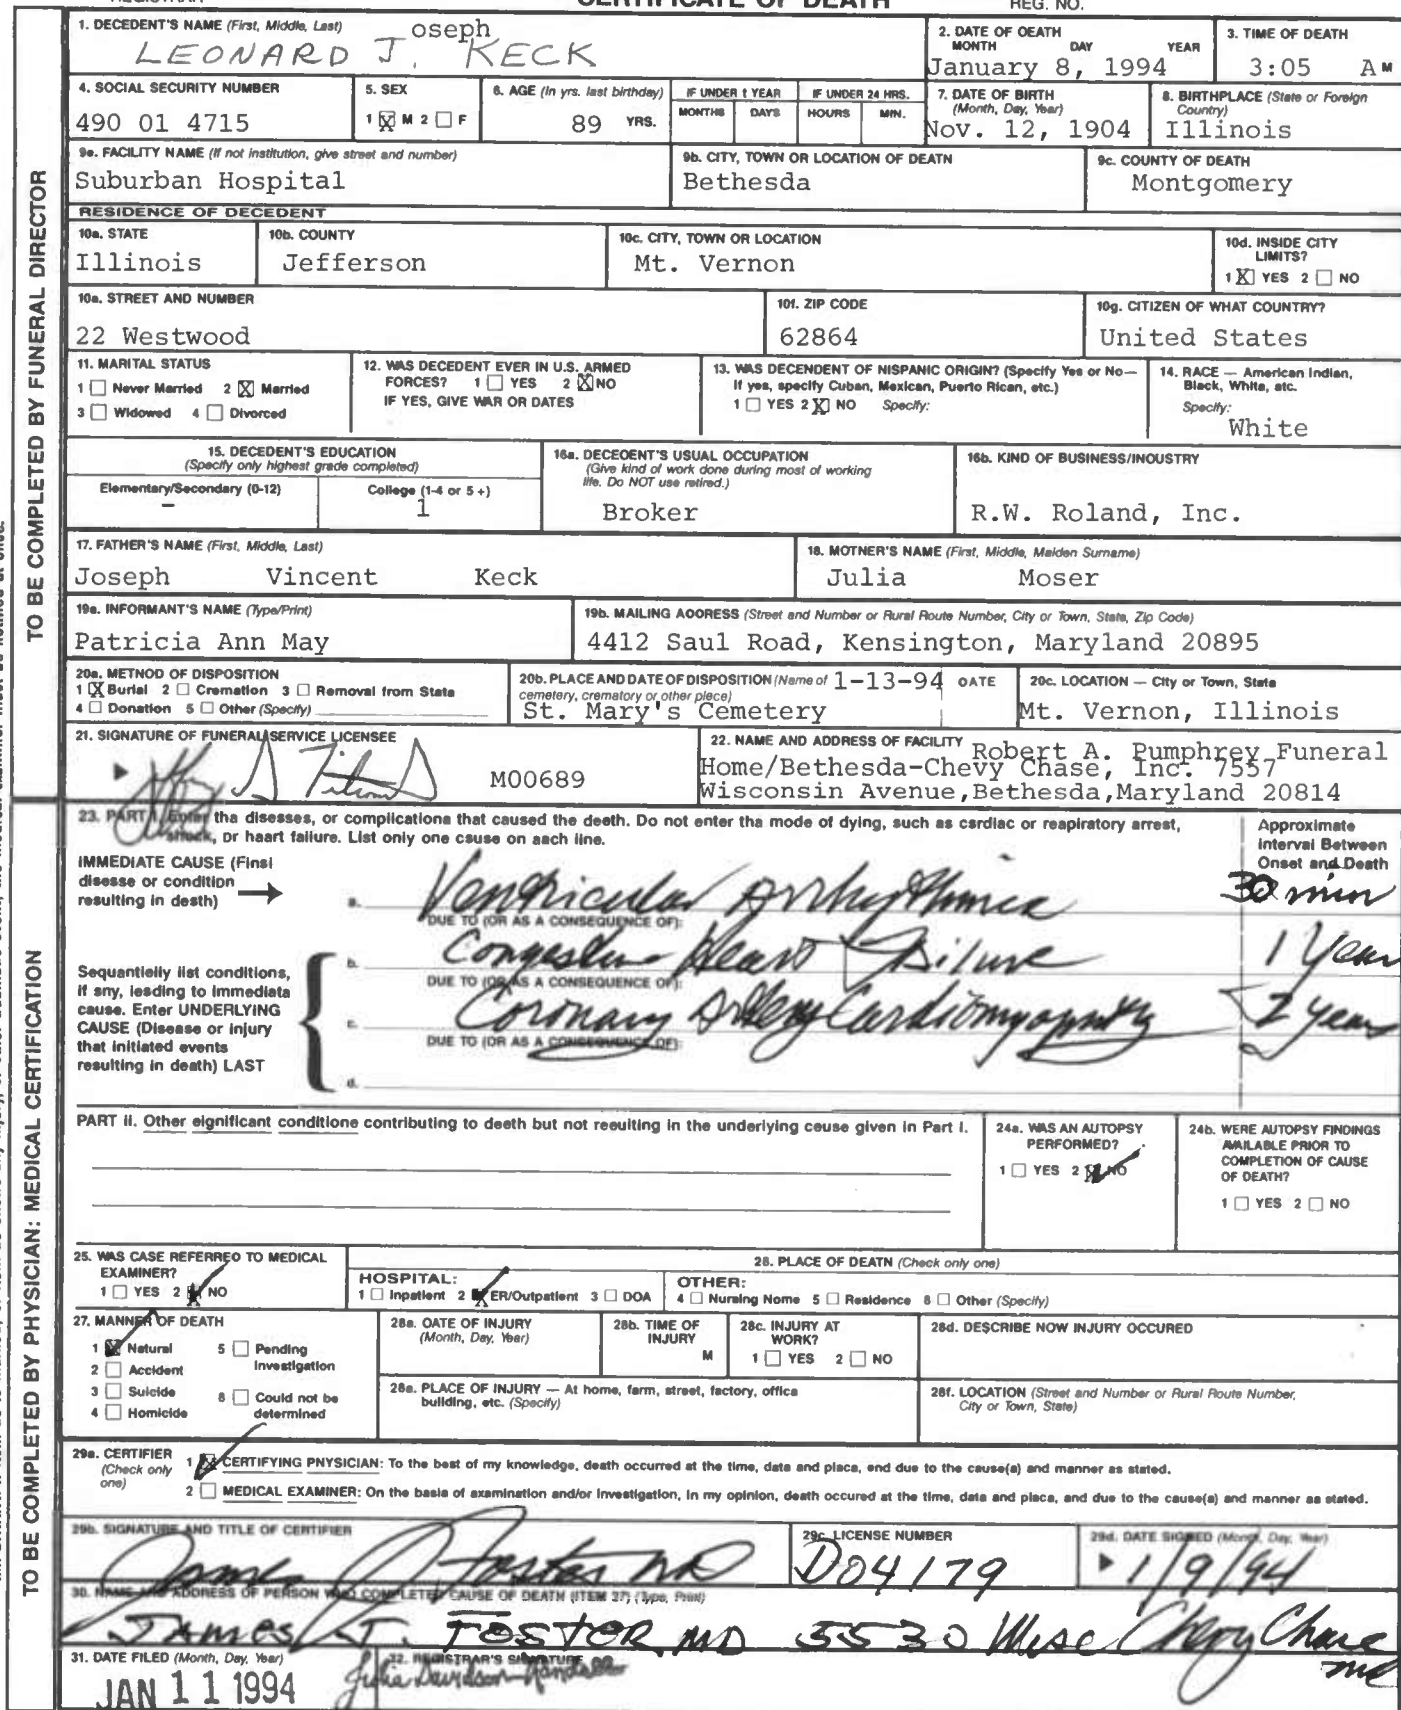 CERTIFICATE OF DEATH
REG. NO.
1. DECEDENT'S NAME (First, Middle, Last)
oseph
LEONARD J. KECK
2. DATE OF DEATH
MONTH DAY YEAR
January 8, 1994
3. TIME OF DEATH
3:05 A M
4. SOCIAL SECURITY NUMBER
490 01 4715
5. SEX
1 ☒ M 2 ☐ F
6. AGE (In yrs. last birthday)
89 YRS.
IF UNDER 1 YEAR
MONTHS DAYS
IF UNDER 24 HRS.
HOURS MIN.
7. DATE OF BIRTH
(Month, Day, Year)
Nov. 12, 1904
8. BIRTHPLACE (State or Foreign
Country)
Illinois
9a. FACILITY NAME (If not institution, give street and number)
Suburban Hospital
9b. CITY, TOWN OR LOCATION OF DEATH
Bethesda
9c. COUNTY OF DEATH
Montgomery
RESIDENCE OF DECEDENT
10a. STATE
Illinois
10b. COUNTY
Jefferson
10c. CITY, TOWN OR LOCATION
Mt. Vernon
10d. INSIDE CITY
LIMITS?
1 ☒ YES 2 ☐ NO
10e. STREET AND NUMBER
22 Westwood
10f. ZIP CODE
62864
10g. CITIZEN OF WHAT COUNTRY?
United States
11. MARITAL STATUS
1 ☐ Never Married 2 ☒ Married
3 ☐ Widowed 4 ☐ Divorced
12. WAS DECEDENT EVER IN U.S. ARMED
FORCES? 1 ☐ YES 2 ☒ NO
IF YES, GIVE WAR OR DATES
13. WAS DECENDENT OF HISPANIC ORIGIN? (Specify Yes or No—
If yes, specify Cuban, Mexican, Puerto Rican, etc.)
1 ☐ YES 2 ☒ NO Specify:
14. RACE — American Indian,
Black, White, etc.
Specify:
White
15. DECEDENT'S EDUCATION
(Specify only highest grade completed)
Elementary/Secondary (0-12)
–
College (1-4 or 5+)
1
16a. DECEDENT'S USUAL OCCUPATION
(Give kind of work done during most of working
life. Do NOT use retired.)
Broker
16b. KIND OF BUSINESS/INDUSTRY
R.W. Roland, Inc.
17. FATHER'S NAME (First, Middle, Last)
Joseph Vincent Keck
18. MOTHER'S NAME (First, Middle, Maiden Surname)
Julia Moser
19a. INFORMANT'S NAME (Type/Print)
Patricia Ann May
19b. MAILING ADDRESS (Street and Number or Rural Route Number, City or Town, State, Zip Code)
4412 Saul Road, Kensington, Maryland 20895
20a. METHOD OF DISPOSITION
1 ☒ Burial 2 ☐ Cremation 3 ☐ Removal from State
4 ☐ Donation 5 ☐ Other (Specify)
20b. PLACE AND DATE OF DISPOSITION (Name of 1-13-94 DATE
cemetery, crematory or other place)
St. Mary's Cemetery
20c. LOCATION — City or Town, State
Mt. Vernon, Illinois
21. SIGNATURE OF FUNERAL SERVICE LICENSEE
M00689
22. NAME AND ADDRESS OF FACILITY Robert A. Pumphrey Funeral
Home/Bethesda-Chevy Chase, Inc. 7557
Wisconsin Avenue, Bethesda, Maryland 20814
TO BE COMPLETED BY FUNERAL DIRECTOR
23. PART I. Enter the diseases, or complications that caused the death. Do not enter the mode of dying, such as cardiac or respiratory arrest,
shock, or heart failure. List only one cause on each line.
Approximate
Interval Between
Onset and Death
IMMEDIATE CAUSE (Final
disease or condition
resulting in death)
a. Ventricular Arrhythmia 30 min
DUE TO (OR AS A CONSEQUENCE OF):
b. Congestive Heart Failure 1 Year
DUE TO (OR AS A CONSEQUENCE OF):
c. Coronary Artery Cardiomyopathy 2 years
DUE TO (OR AS A CONSEQUENCE OF):
d.
Sequentially list conditions,
if any, leading to immediate
cause. Enter UNDERLYING
CAUSE (Disease or injury
that initiated events
resulting in death) LAST
PART II. Other significant conditions contributing to death but not resulting in the underlying cause given in Part I.
24a. WAS AN AUTOPSY
PERFORMED?
1 ☐ YES 2 ☒ NO
24b. WERE AUTOPSY FINDINGS
AVAILABLE PRIOR TO
COMPLETION OF CAUSE
OF DEATH?
1 ☐ YES 2 ☐ NO
25. WAS CASE REFERRED TO MEDICAL
EXAMINER?
1 ☐ YES 2 ☒ NO
26. PLACE OF DEATH (Check only one)
HOSPITAL:
1 ☐ Inpatient 2 ☒ ER/Outpatient 3 ☐ DOA
OTHER:
4 ☐ Nursing Home 5 ☐ Residence 6 ☐ Other (Specify)
27. MANNER OF DEATH
1 ☒ Natural 5 ☐ Pending
Investigation
2 ☐ Accident
3 ☐ Suicide 6 ☐ Could not be
determined
4 ☐ Homicide
28a. DATE OF INJURY
(Month, Day, Year)
28b. TIME OF
INJURY
M
28c. INJURY AT
WORK?
1 ☐ YES 2 ☐ NO
28d. DESCRIBE HOW INJURY OCCURED
28e. PLACE OF INJURY — At home, farm, street, factory, office
building, etc. (Specify)
28f. LOCATION (Street and Number or Rural Route Number,
City or Town, State)
29a. CERTIFIER
(Check only
one)
1 ☒ CERTIFYING PHYSICIAN: To the best of my knowledge, death occurred at the time, date and place, and due to the cause(s) and manner as stated.
2 ☐ MEDICAL EXAMINER: On the basis of examination and/or investigation, in my opinion, death occured at the time, date and place, and due to the cause(s) and manner as stated.
29b. SIGNATURE AND TITLE OF CERTIFIER
James J Foster MD
29c. LICENSE NUMBER
D04179
29d. DATE SIGNED (Month, Day, Year)
1/9/94
30. NAME AND ADDRESS OF PERSON WHO COMPLETED CAUSE OF DEATH (ITEM 27) (Type, Print)
James T. FOSTER, MD 5530 Wisc Chevy Chase
md
31. DATE FILED (Month, Day, Year)
JAN 11 1994
32. REGISTRAR'S SIGNATURE
Julia Davidson-Randall
TO BE COMPLETED BY PHYSICIAN: MEDICAL CERTIFICATION